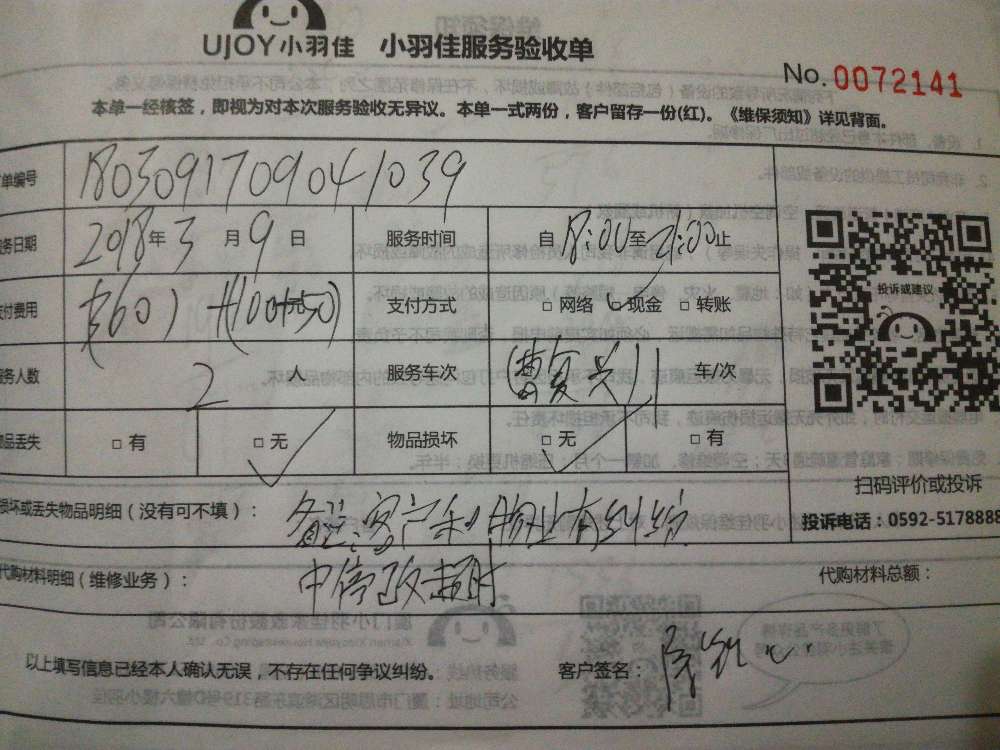 UJOY小羽佳 小羽佳服务验收单
No.0072141
本单一经核签，即视为对本次服务验收无异议。本单一式两份，客户留存一份(红)。《维保须知》详见背面。
单编号 1803091709041039
务日期 2018年3月9日 服务时间 自18:00至21:00止
付费用 601 元 +(100+50) 支付方式 □网络 □现金 □转账
投诉或建议
务人数 2人 服务车次 车/次
品丢失 □有 □无 物品损坏 □无 □有
扫码评价或投诉
损坏或丢失物品明细（没有可不填）： 备注:客户和物业有纠纷
投诉电话：0592-5178888
代购材料明细（维修业务）： 中停 超时 代购材料总额：
以上填写信息已经本人确认无误，不存在任何争议纠纷。 客户签名：